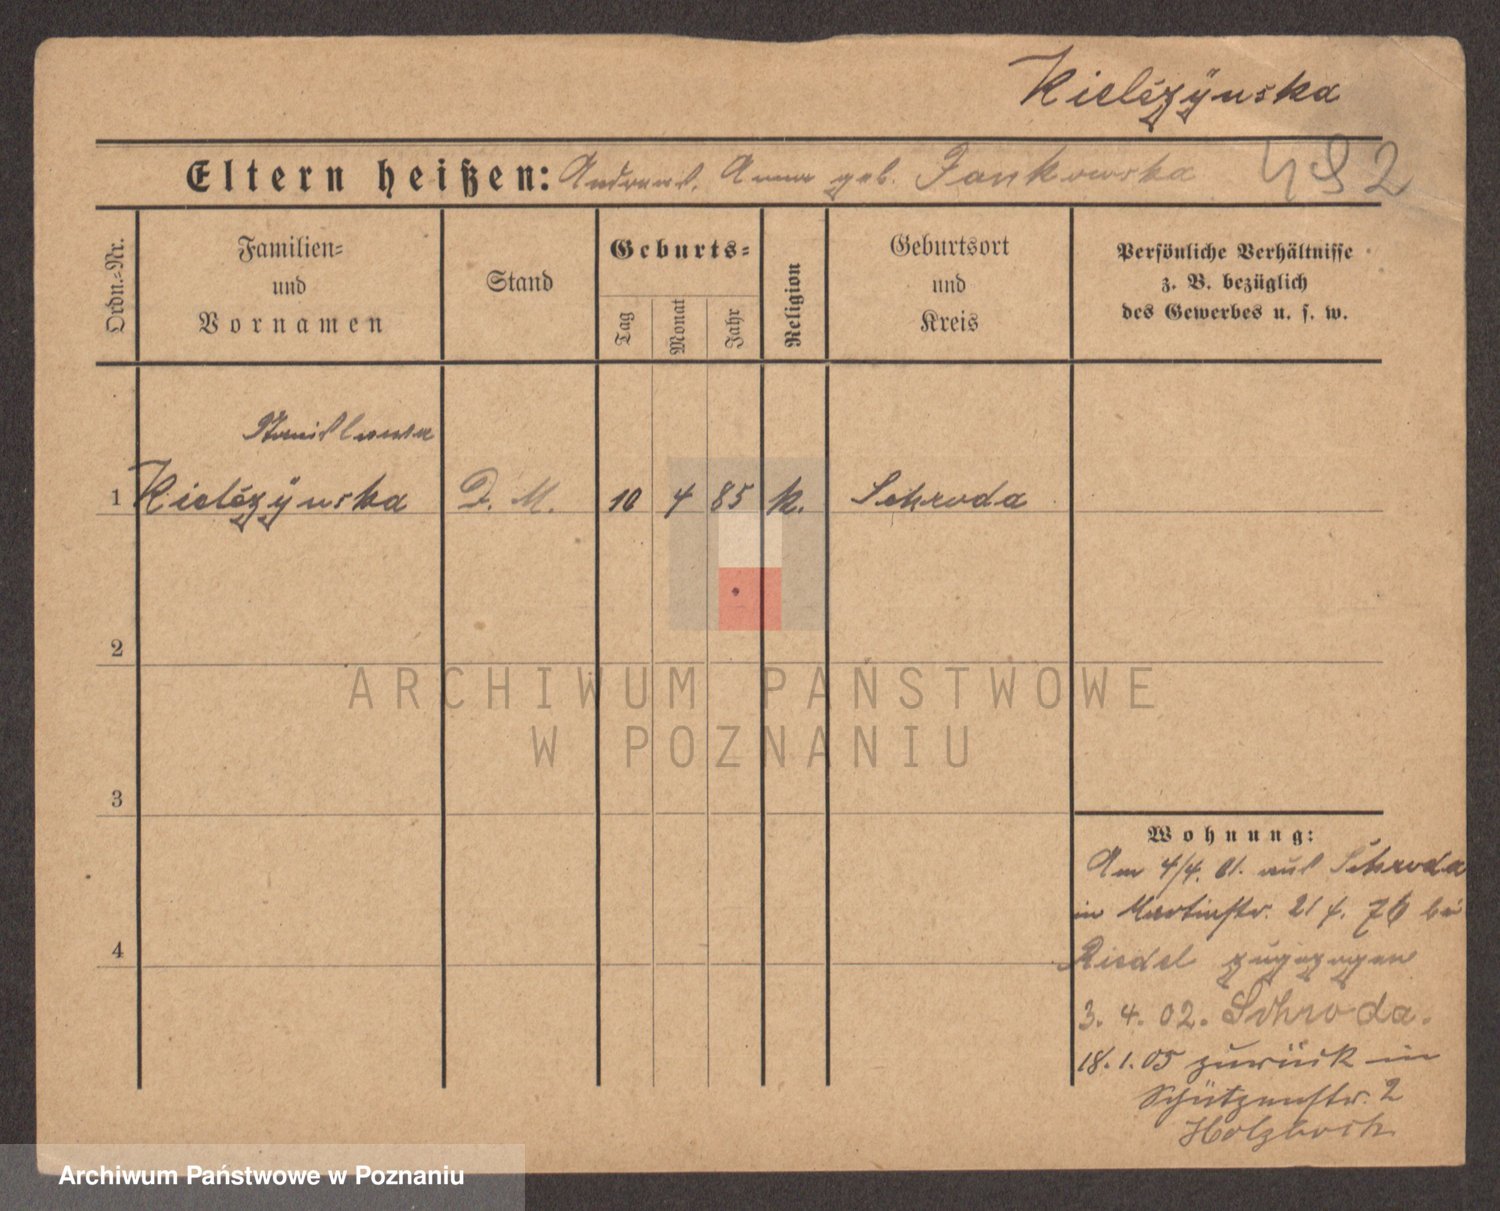 Kielczÿnska
Eltern heißen: Andreas. Anna geb. Jankowska 492
Ordn.=Nr.
Familien=
und
Vornamen
Stand
Geburts=
Tag
Monat
Jahr
Religion
Geburtsort
und
Kreis
Persönliche Verhältnisse
z. B. bezüglich
des Gewerbes u. s. w.
Stanislawa
1 Kielczÿnska D. M. 10 4 85 k. Schroda
2
ARCHIWUM PAŃSTWOWE
W POZNANIU
3
4
Wohnung:
Am 4/4. 01. aus Schroda
in Martinstr. 21 f. 76 bei
Riedel zugezogen
3. 4. 02. Schroda.
18. 1. 05 zurück in
Schützenstr. 2
Holzbock
Archiwum Państwowe w Poznaniu